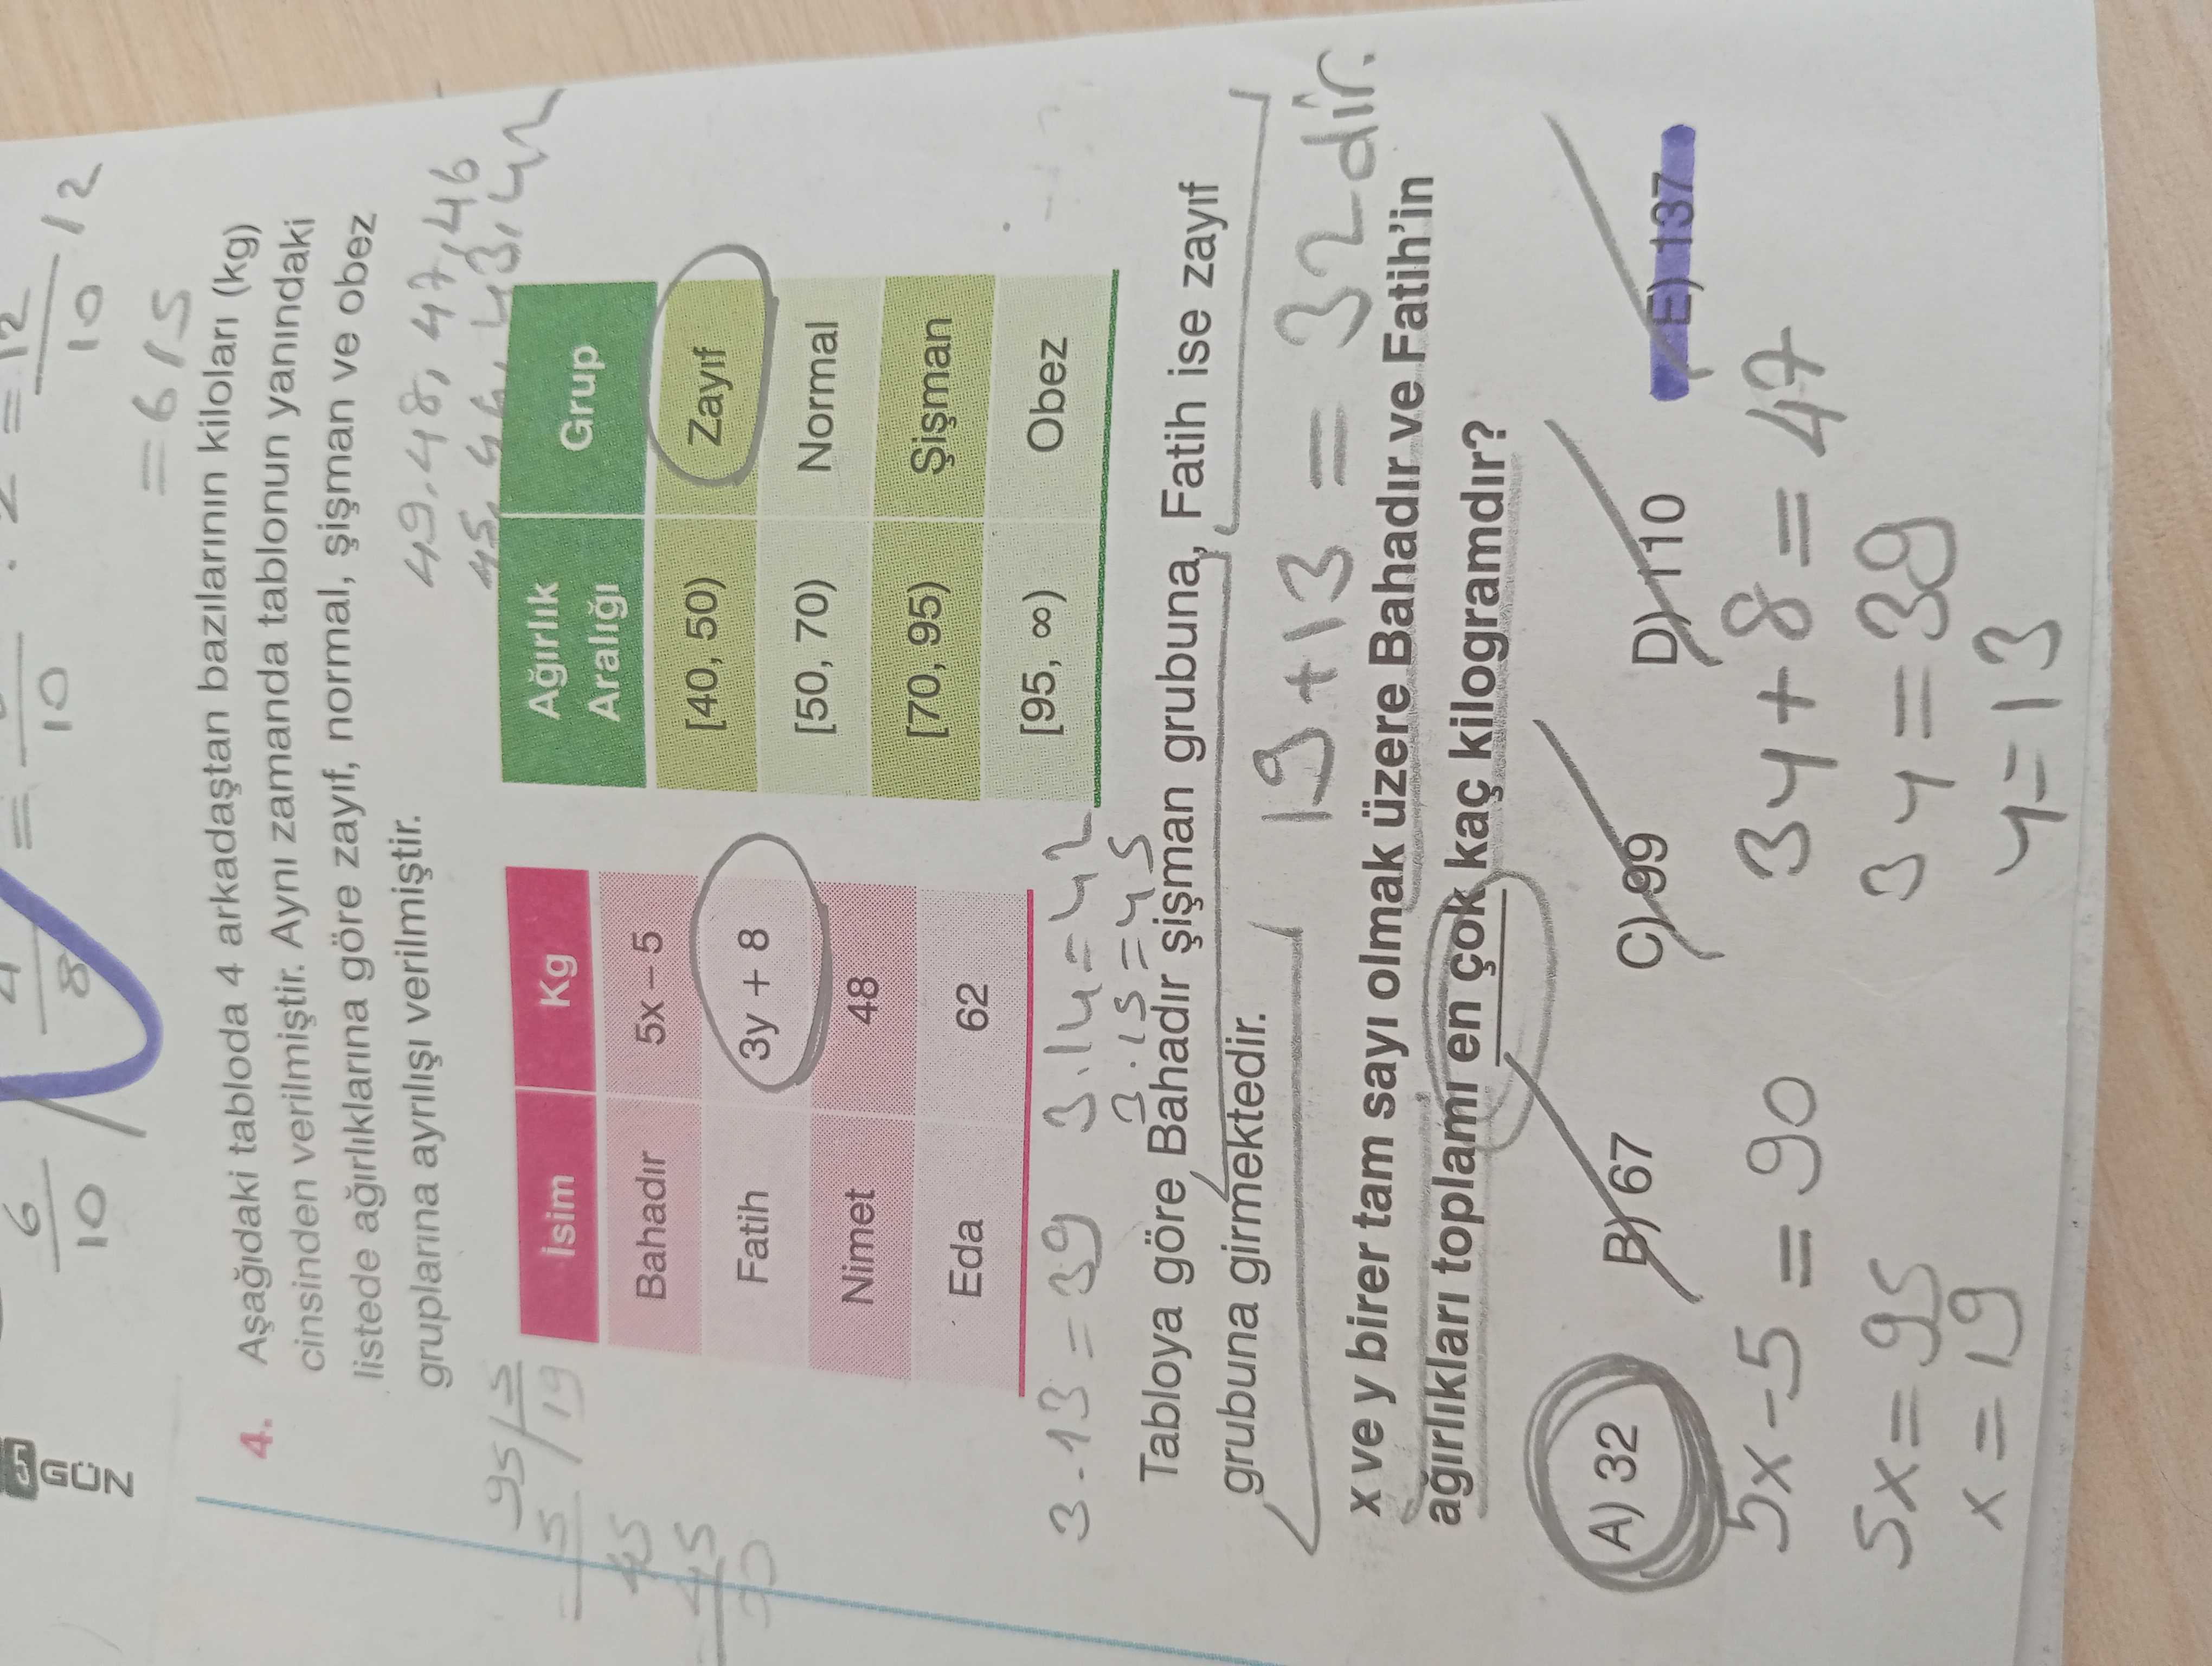 12
= — 12
10 10
= 6/5
6
10
4
8
10
GÜN
4. Aşağıdaki tabloda 4 arkadaştan bazılarının kiloları (kg)
cinsinden verilmiştir. Aynı zamanda tablonun yanındaki
listede ağırlıklarına göre zayıf, normal, şişman ve obez
gruplarına ayrılışı verilmiştir.
49, 48, 47, 46
95 5
19
45
45
İsim Kg
Bahadır 5x – 5
Fatih 3y + 8
Nimet 48
Eda 62
Ağırlık Aralığı Grup
[40, 50) Zayıf
[50, 70) Normal
[70, 95) Şişman
[95, ∞) Obez
3.13 = 39 3.14 = 42
3.15 = 45
Tabloya göre Bahadır şişman grubuna, Fatih ise zayıf
grubuna girmektedir.
19 + 13 = 32 dir.
x ve y birer tam sayı olmak üzere Bahadır ve Fatih'in
ağırlıkları toplamı en çok kaç kilogramdır?
A) 32 B) 67 C) 99 D) 110 E) 137
5x - 5 = 90 3y + 8 = 47
5x = 95 3y = 39
x = 19 y = 13